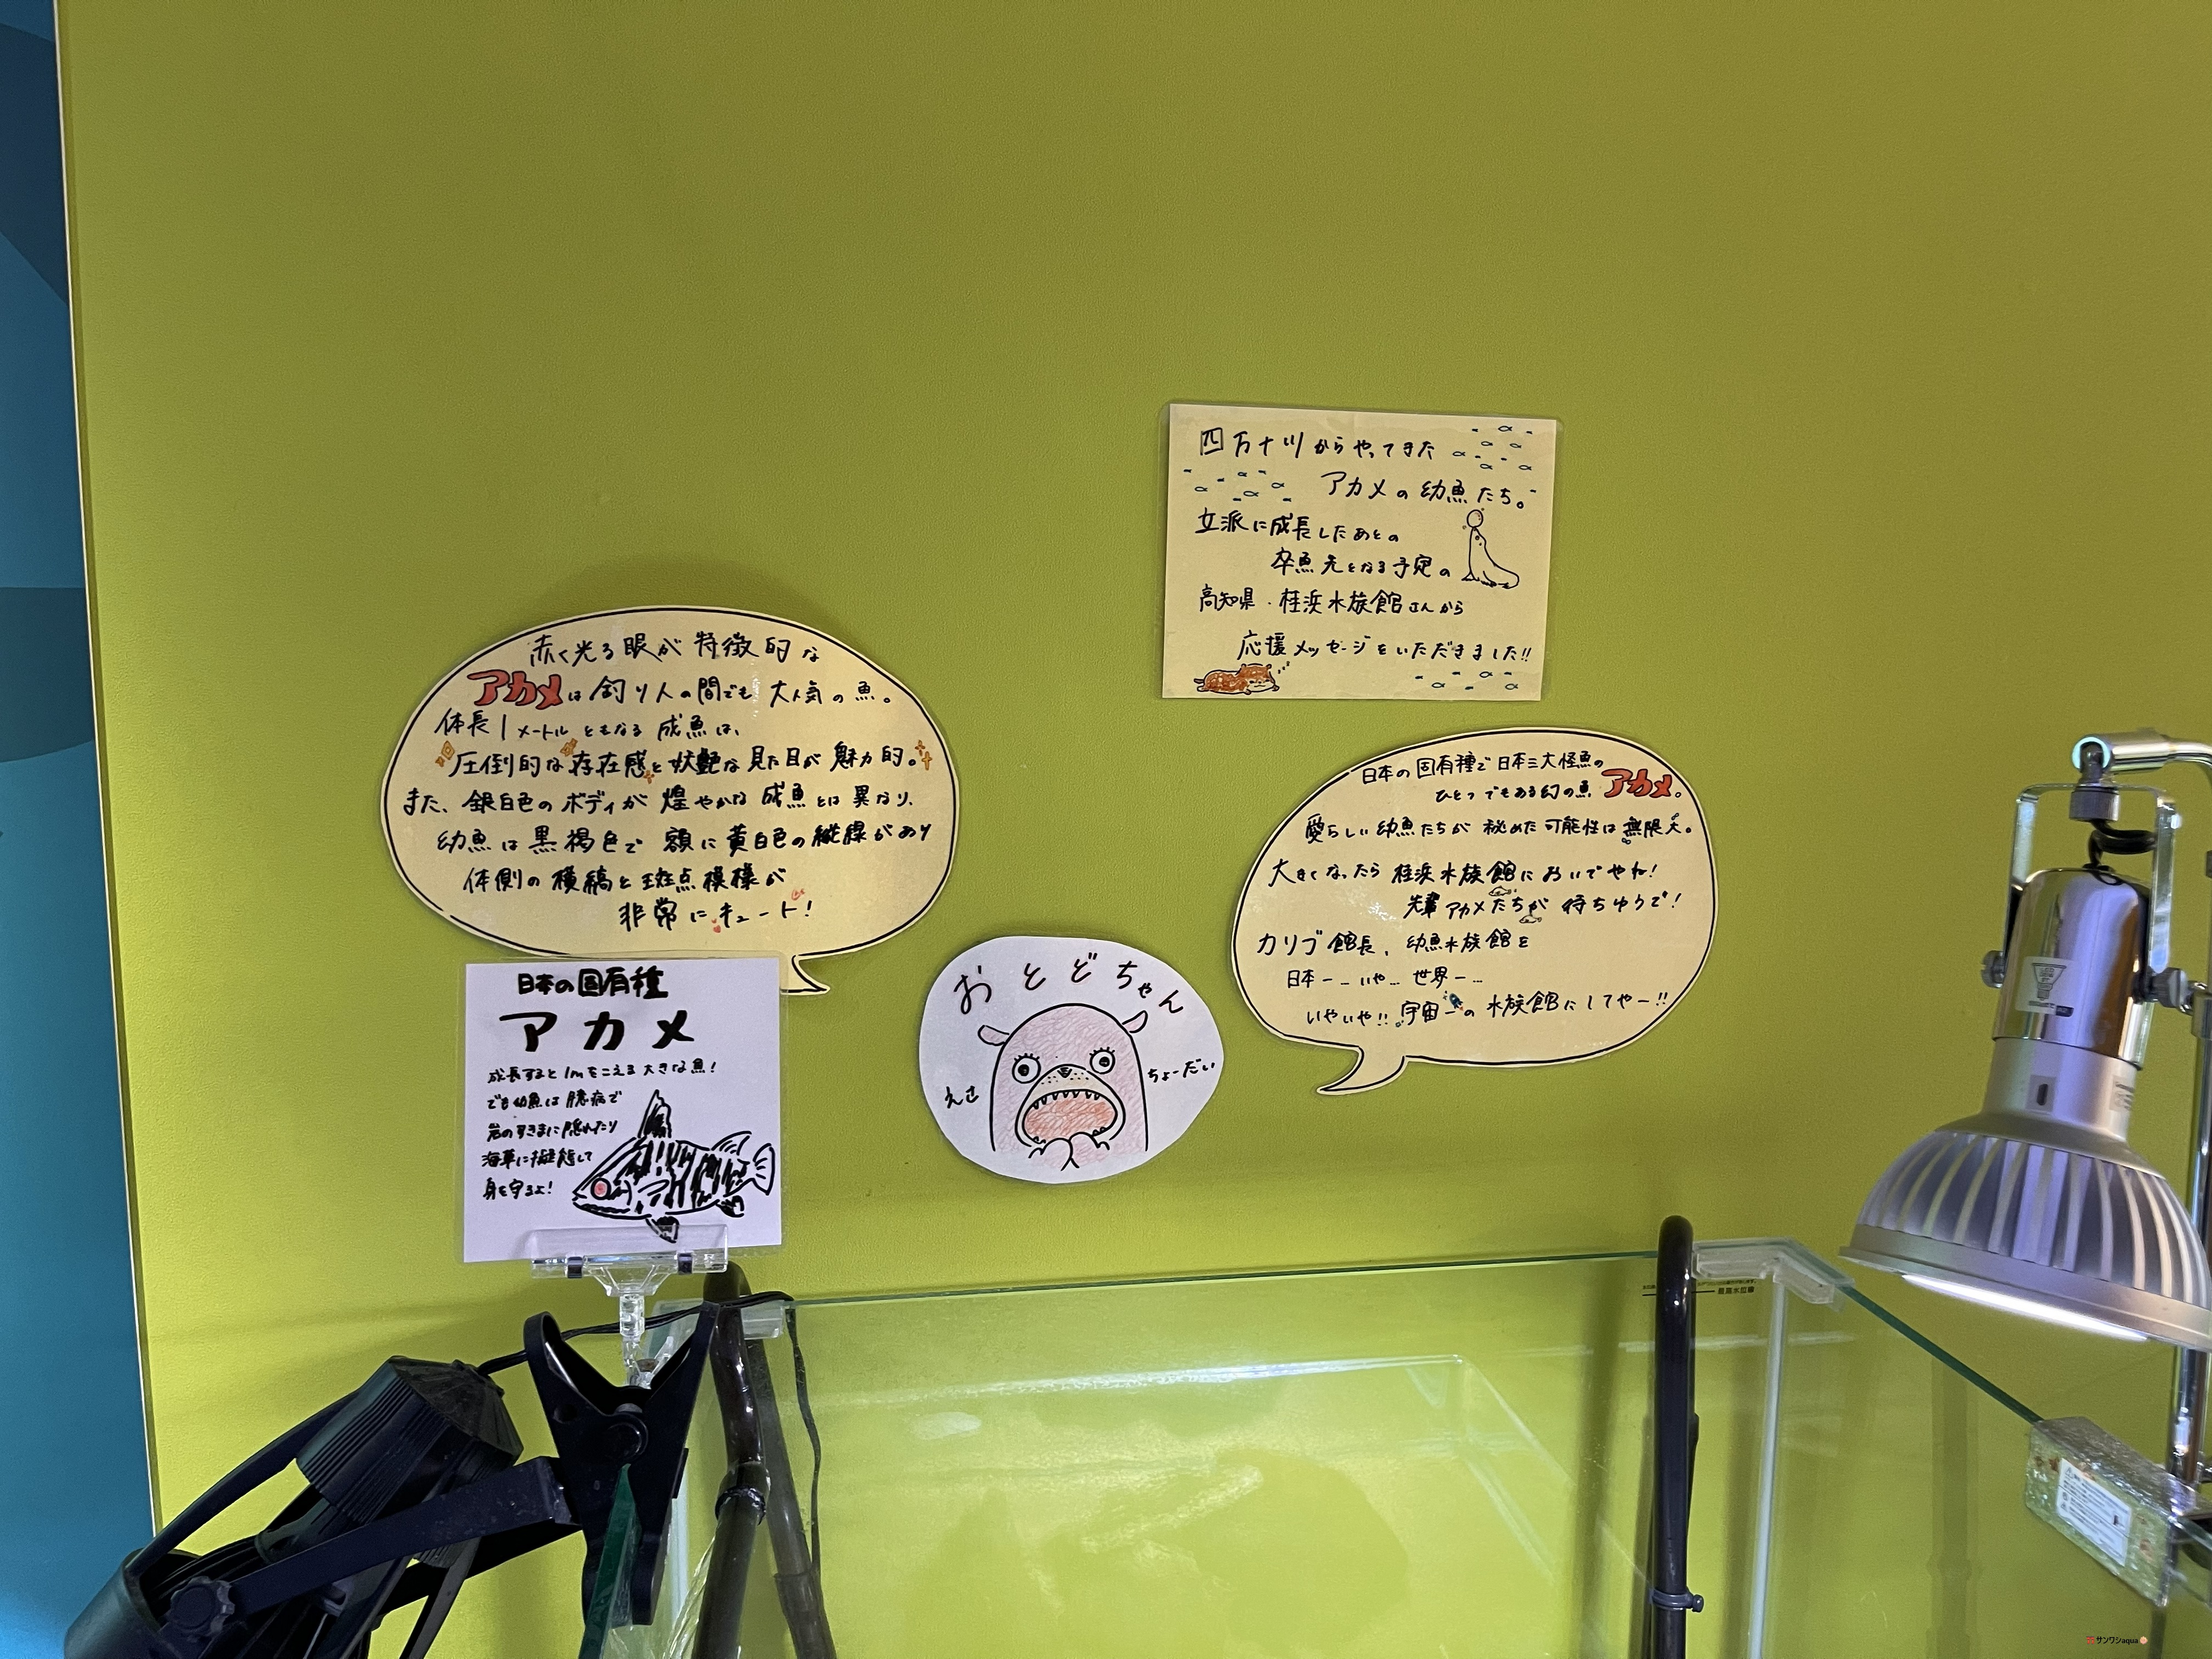 四万十川からやってきた
アカメの幼魚たち。
立派に成長したあとの
卒魚先となる予定の
高知県・桂浜水族館さんから
応援メッセージをいただきました!!
赤く光る眼が特徴的な
アカメは釣り人の間でも大人気の魚。
体長1メートルともなる成魚は、
圧倒的な存在感と妖艶な見た目が魅力的。
また、銀白色のボディが煌やかな成魚とは異なり、
幼魚は黒褐色で額に黄白色の縦線があり
体側の横縞と斑点模様が
非常にキュート!
日本の固有種で日本三大怪魚の
ひとつでもある幻の魚アカメ。
愛らしい幼魚たちが秘めた可能性は無限大。
大きくなったら桂浜水族館においでやね!
先輩アカメたちが待ちゆうで!
カリブ館長、幼魚水族館を
日本一…いや…世界一…
いやいや!!宇宙一の水族館にしてやー!!
日本の固有種
アカメ
成長すると1mをこえる大きな魚!
でも幼魚は臆病で
岩のすきまに隠れたり
海草に擬態して
身を守るよ!
おとどちゃん
えさ
ちょーだい
サンワシaqua